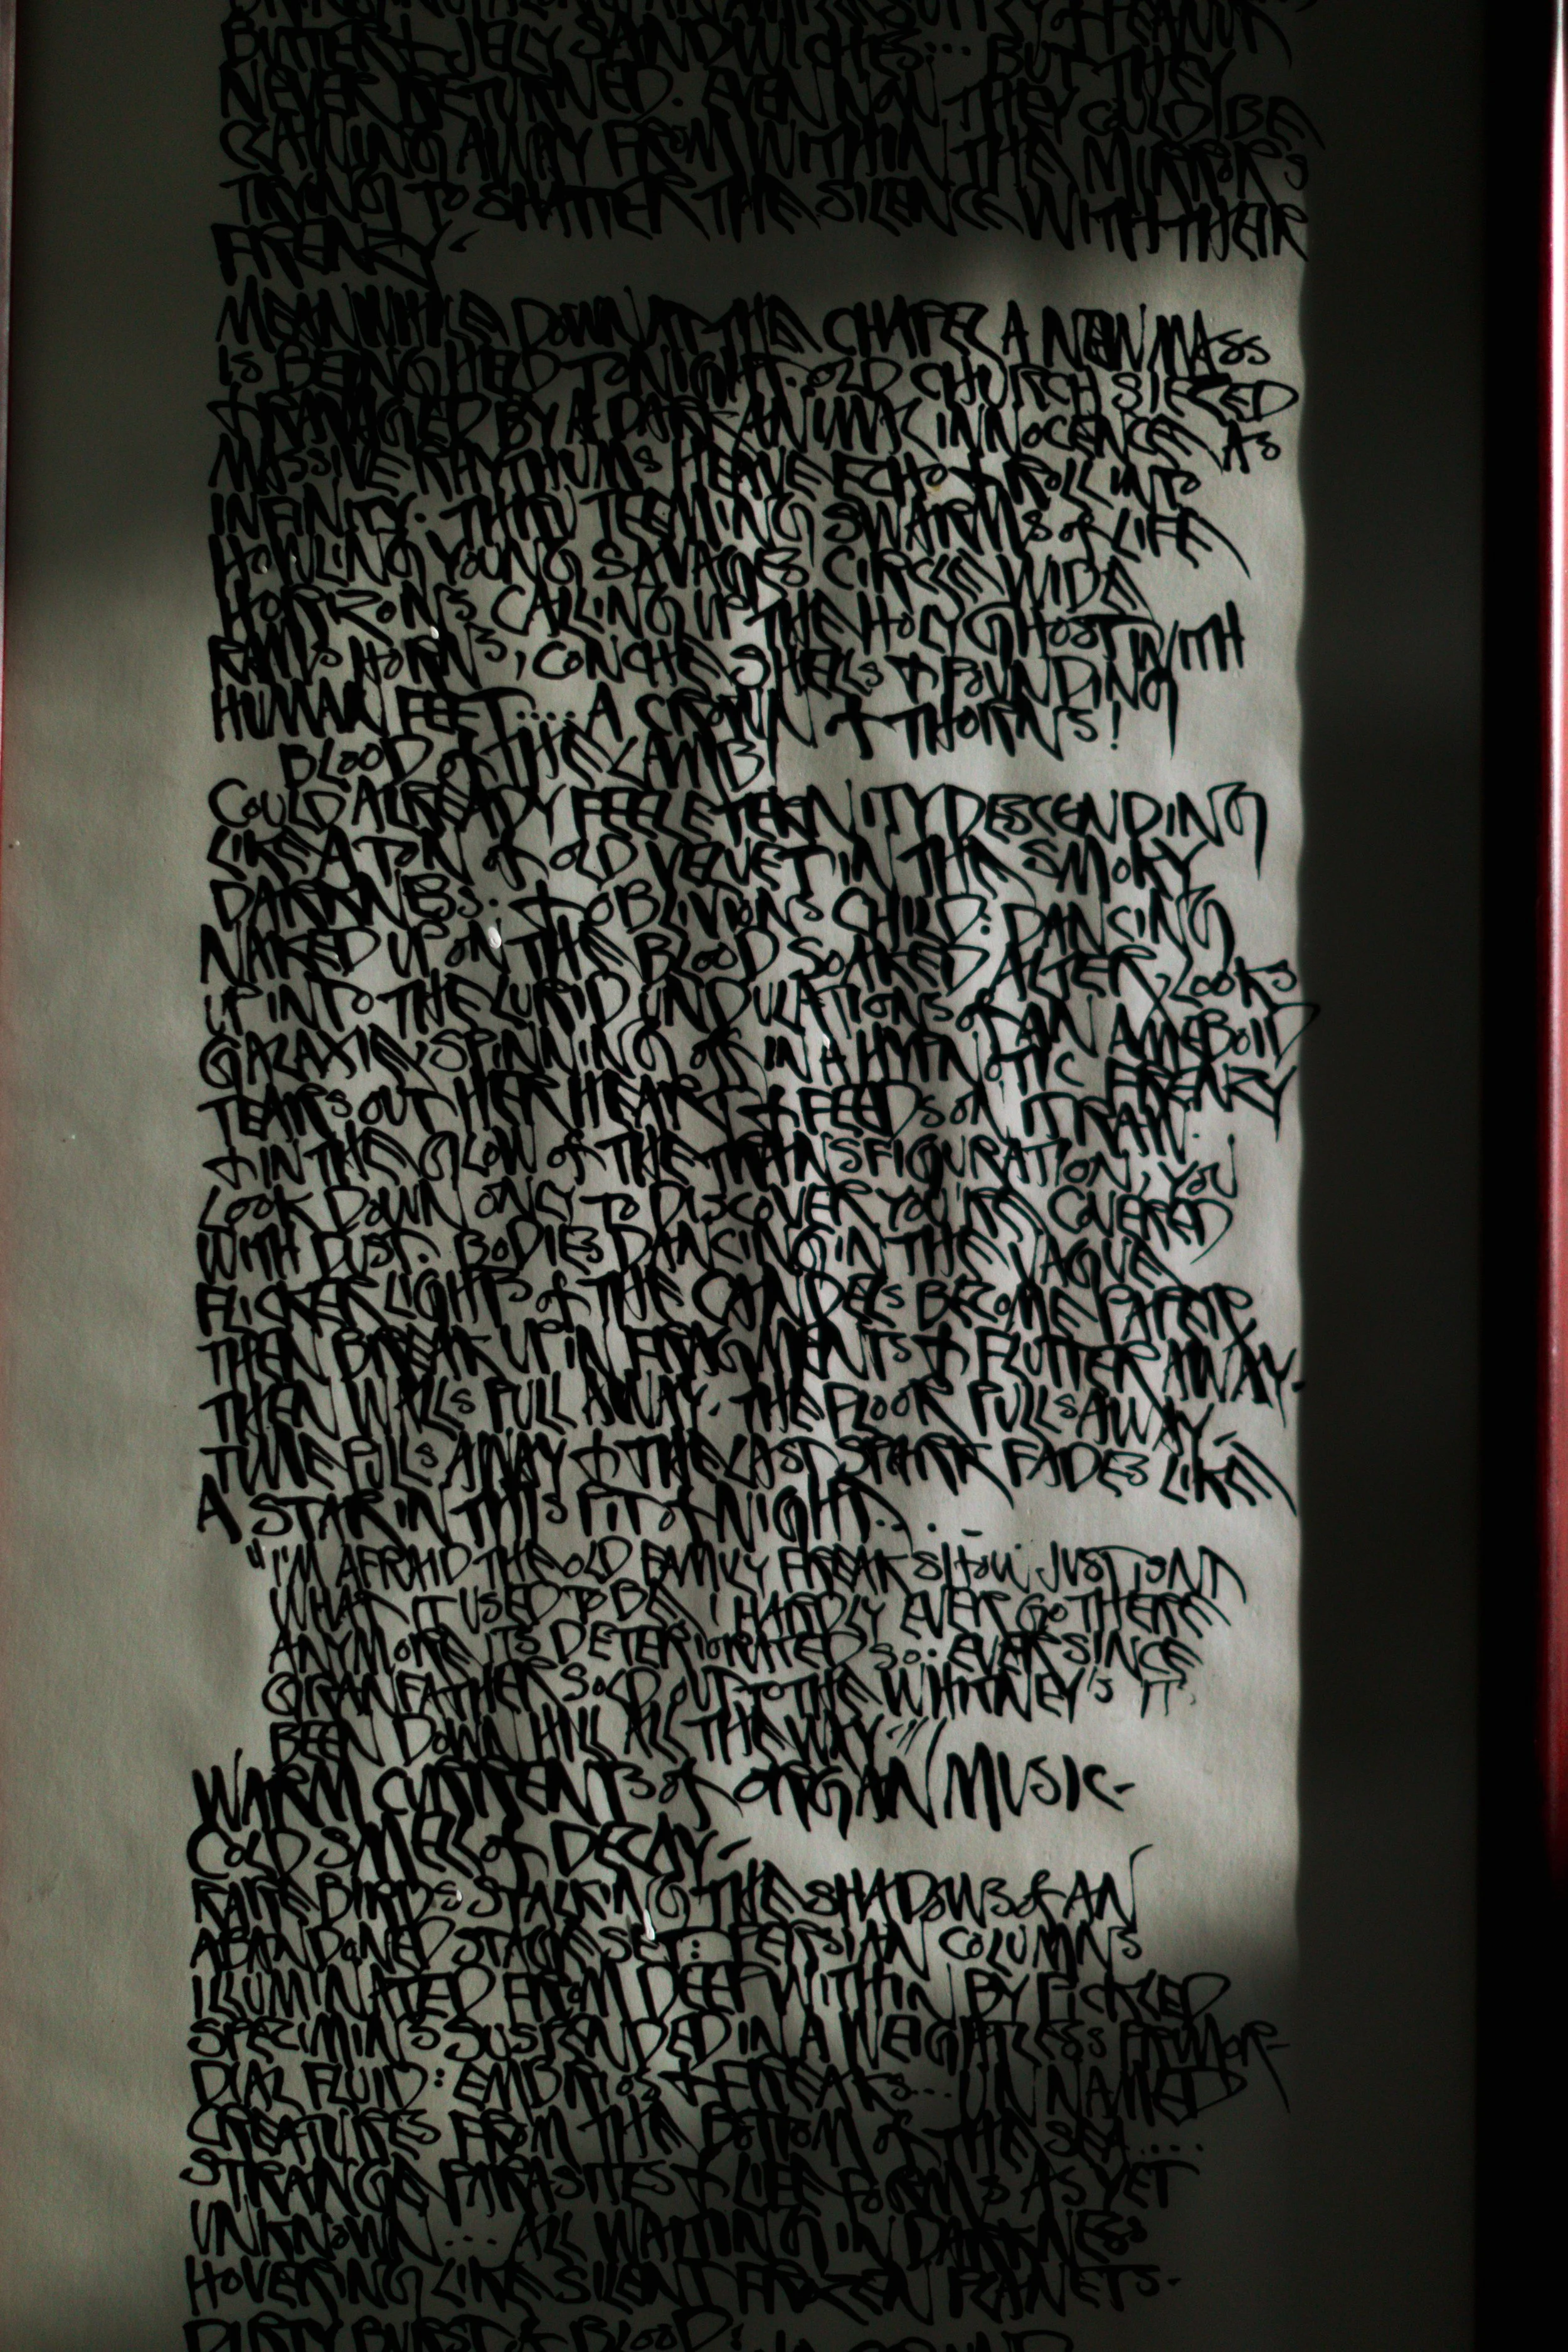 BUTTER & JELY SANDWICHES... BUT THEY
NEVER RETURNED. EVEN NOW THEY COULD BE
CALLING AWAY FROM WITHIN THE MIRRORS
TRYING TO SHATTER THE SILENCE WITH THEIR
FRENZY-
MEANWHILE DOWN AT THE CHAPEL A NEW MASS
IS BEING HELD TONIGHT. OLD CHURCH SIEZED
& RAVAGED BY A DARK ANIMAL INNOCENCE AS
MASSIVE RHYTHUMS HEAVE ECHO & ROLL INTO
INFINITY. THRU TEEMING SWARMS OF LIFE
HOWLING YOUNG SAVAGES CIRCLE WIDE
HORIZONS CALLING UP THE HOLY GHOST WITH
RAMS HORNS, CONCHE SHELLS & POUNDING
HUMAN FEET.... A CROWN & THORNS!
BLOOD OF THE LAMB!
COULD ALREADY FEEL ETERNITY DESCENDING
LIKE A TON OF OLD VELVET IN THE SMOKY
DARKNESS: & OBLIVIONS CHILD: DANCING
NAKED UPON THE BLOOD SOAKED ALTER, LOOKS
UP INTO THE LURID UNDULATIONS OF AN AMEBOID
GALAXIE SPINNING OFF IN A HYPNOTIC FRENZY
TEARS OUT HER HEART & FEEDS ON IT RAW.
& IN THE GLOW OF THE TRANSFIGURATION, YOU
LOOK DOWN ONLY TO DISCOVER YOU'RE COVERED
WITH DUST. BODIES DANCING IN THE VAGUE
FLICKER LIGHTS OF THE CANDELS BECOME PAPER
THEN BREAK UP IN FRAGMENTS & FLUTTER AWAY-
THEN WALLS PULL AWAY. THE FLOOR PULLS AWAY-
TIME PULLS AWAY & THE LAST SPARK FADES LIKE
A STAR IN THIS PIT OF NIGHT...-
"I'M AFRAID THE OLD FAMILY FREAK SHOW JUST ISNT
WHAT IT USED TO BE, I HARDLY EVER GO THERE
ANYMORE ITS DETERIORATED SO. EVER SINCE
GRANFATHER SOLD OUT TO THE WHITNEY'S IT'
BEEN DOWN HILL ALL THE WAY-"
WARM CURRENTS OF ORGAN MUSIC-
COLD SMELL OF DECAY-
RARE BIRDS STALKING THE SHADOWS OF AN
ABANDONED STAGE SET: PERSIAN COLUMNS
ILLUMINATED FROM DEEP WITHIN BY PICKLED
SPECIMINS SUSPENDED IN A WEIGHTLESS PRIMOR-
DIAL FLUID: EMBRIOS & FREAKS... UN NAMED
CREATURES FROM THE BOTTOM OF THE SEA....
STRANGE PARASITES & LIFE FORMS AS YET
UNKNOWN.... ALL WAITING IN DARKNESS
HOVERING LIKE SILENT FROZEN PLANETS-
DIRTY BURST OF BLOOD: